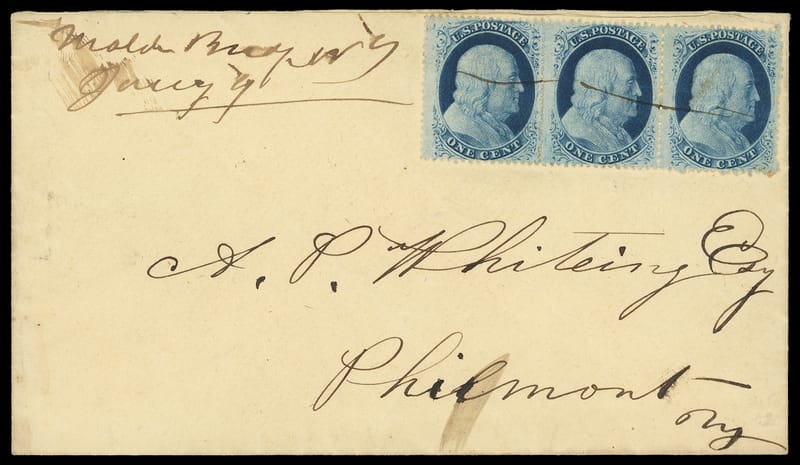 Malden Bridge NY
Jany 9
U.S. POSTAGE U.S. POSTAGE U.S. POSTAGE
ONE CENT ONE CENT ONE CENT
A. P. Whiteing Esq
Philmont
NY